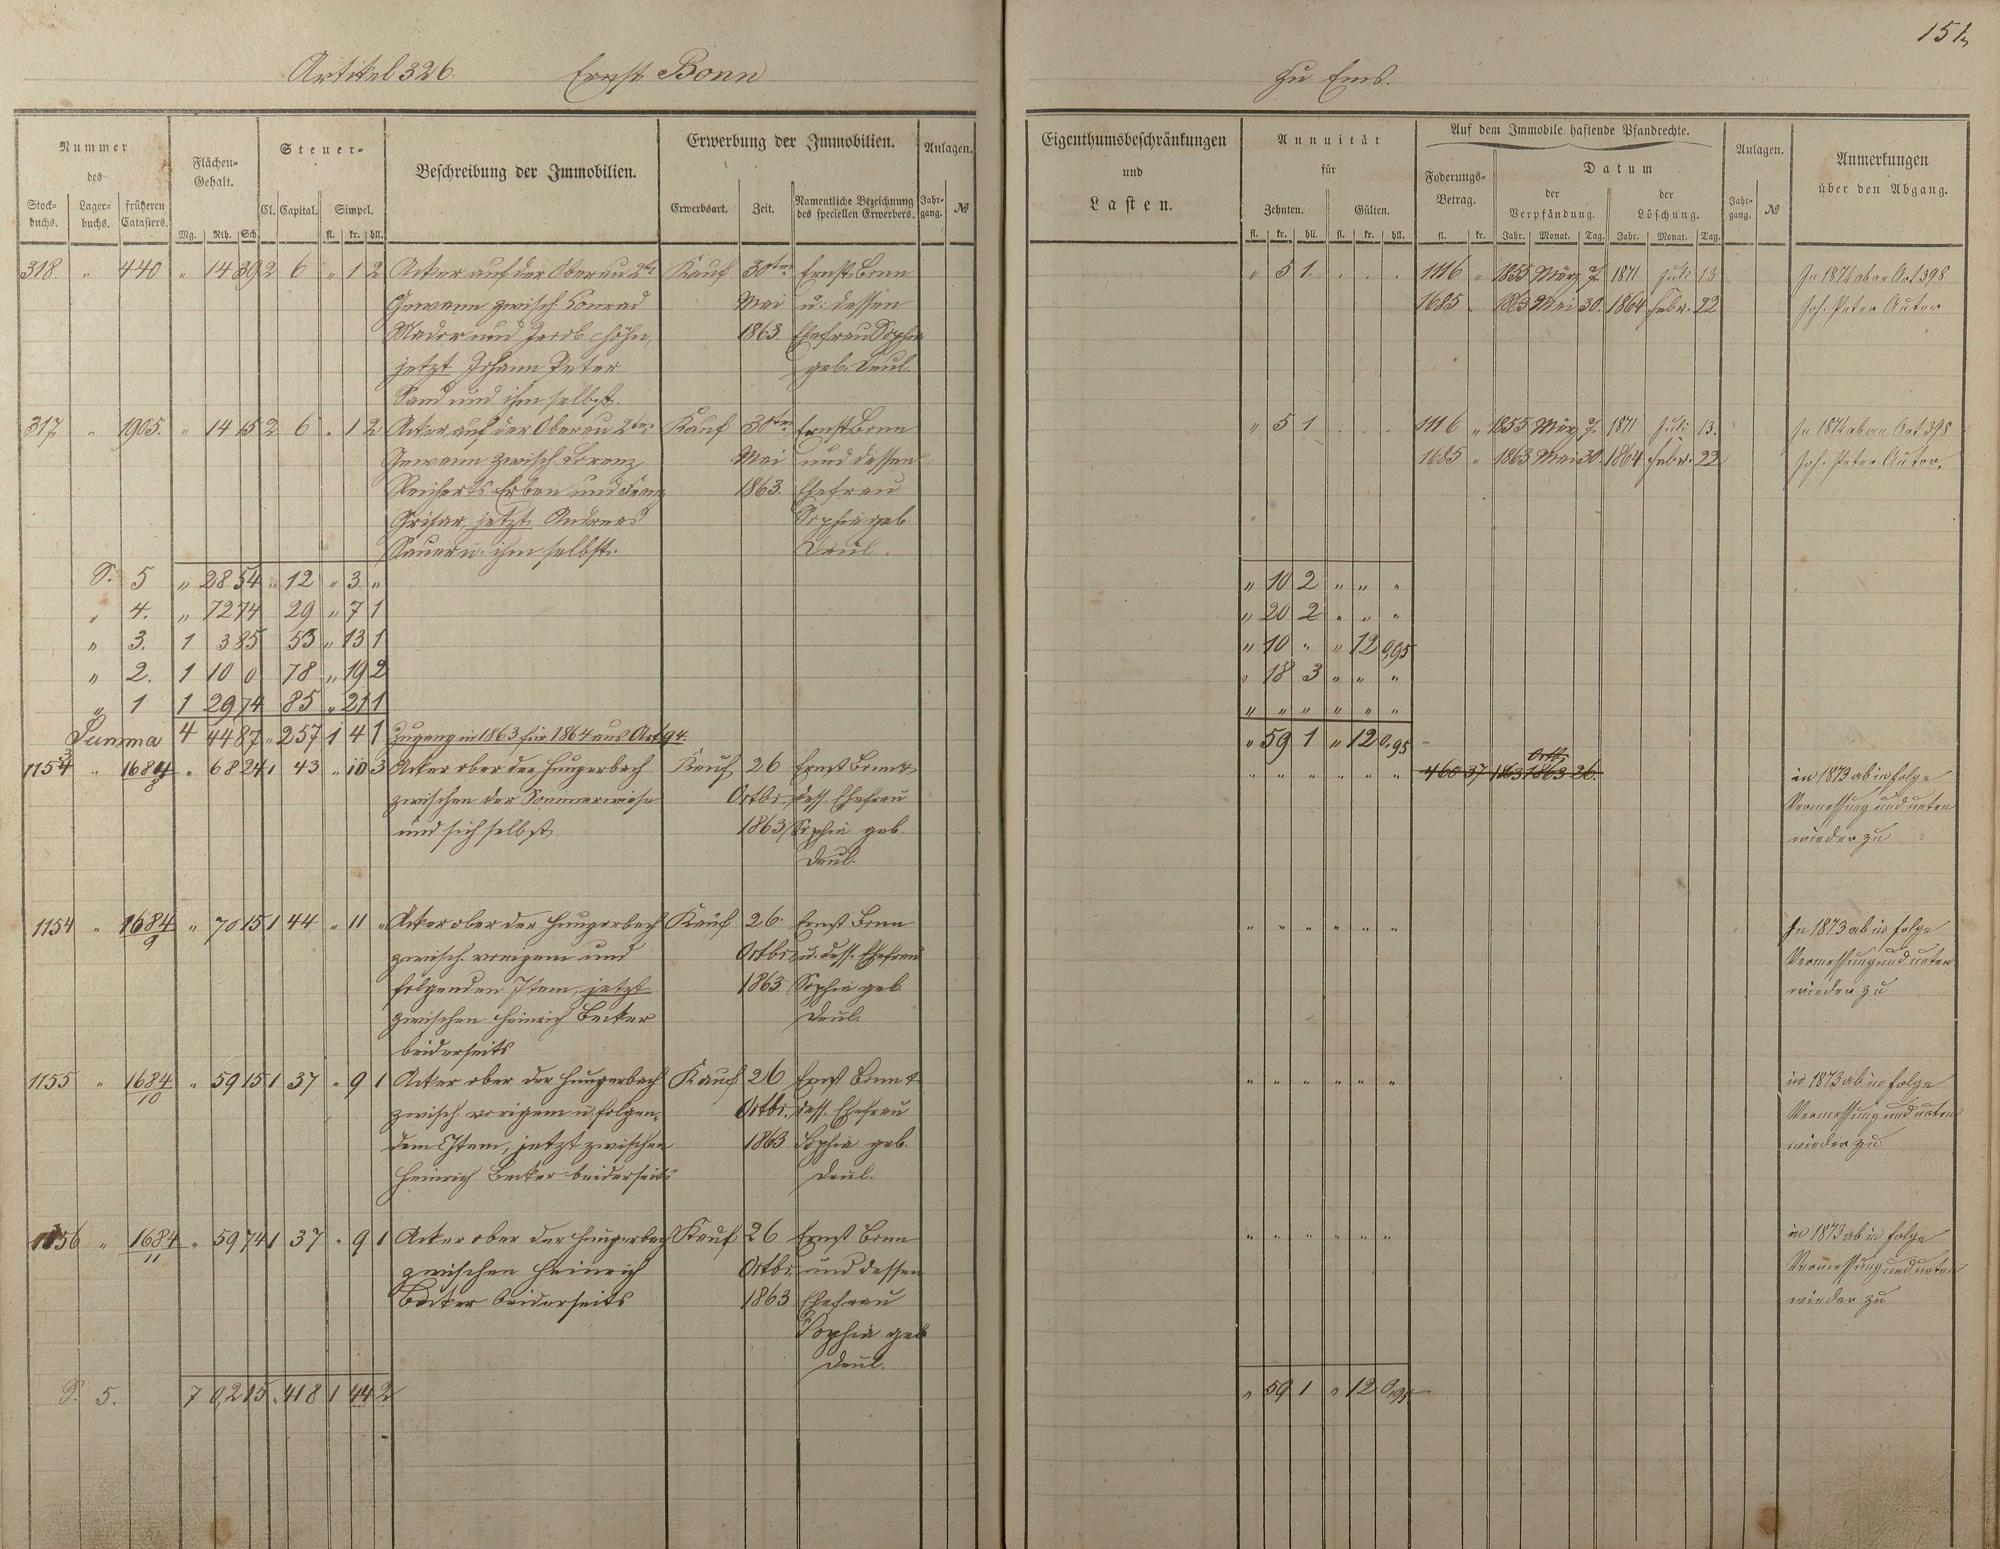 151
Artikel 326. Ernst Bonn zu Ems.
Nummer des
Stockbuchs. Lagerbuchs. früheren Catasters.
Flächen-Gehalt.
Mg. Rth. Sch.
Steuer-
Cl. Capital. Simpel.
fl. kr. hll.
Beschreibung der Immobilien.
Erwerbung der Immobilien.
Erwerbsart. Zeit. Namentliche Bezeichnung des speciellen Erwerbers.
Anlagen.
Jahrgang. №
Eigenthumsbeschränkungen
und
Lasten.
Annuität
für
Zehnten. Gülten.
fl. kr. hll. fl. kr. hll.
Auf dem Immobile haftende Pfandrechte.
Foderungs-Betrag.
fl. kr.
Datum
der Verpfändung. der Löschung.
Jahr. Monat. Tag. Jahr. Monat. Tag.
Anlagen.
Jahrgang. №
Anmerkungen
über den Abgang.
318. " 440 " 14 39 2 6 " 1 2 Acker auf der Oberau 2te Kauf 30ten Ernst Bonn " 5 1 . . . 1116 " 1855 März 7. 1871 Juli 13 In 1874 ab an Art 398
Gewann zwisch Konrad Mai u. dessen 1685 . 1863 Mai 30. 1864 Febr. 22 Joh. Peter Autor
und Jacob Höhn, 1863. Ehefrau Sophia
jetzt Johann Peter geb. Deul.
Sand und ihm selbst.
317 " 1905. " 14 15 2 6 . 1 2 Acker auf der Oberau 2ten Kauf 30ten Ernst Bonn " 5 1 . . . 1116 " 1855 März 7. 1871 Juli 13. In 1874 ab an Art 398
Gewann zwisch. Lorenz Mai und dessen 1685 " 1863 Mai 30. 1864 Febr. 22 Joh. Peter Autor.
Reicherts Erben und Franz 1863. Ehefrau
Grisar, jetzt Andreas Sophia geb
Sauer u. ihm selbst. Deul.
S. 5 " 28 54 " 12 " 3 " " 10 2 " " "
" 4. " 72 74 29 " 7 1 " 20 2 " " "
" 3. 1 3 85 53 " 13 1 " 10 " " 12 0,95
" 2. 1 10 0 78 " 19 2 " 18 3 " " "
" 1 1 29 74 85 " 21 1 " " " " " "
Summa 4 44 87 " 257 1 4 1 Zugang in 1863 für 1864 aus Art 94. " 59 1 " 12 0,95
" 68 24 1 43 " 10 3 Acker ober der Hungerbach Kauf 26 Ernst Bonn u. " " " " " " 460 37 1863 26. in 1873 ab in folge
zwischen der Sommerwiese Octbr. dess. Ehefrau Vermessung und unten
und sich selbst 1863 Sophia geb. wieder zu
Deul.
1154 " 1684/9 " 70 15 1 44 " 11 " Acker ober der Hungerbach Kauf 26. Ernst Bonn " " " " " " In 1873 ab in folge
zwisch. vorigem und Octbr. u. dess. Ehefrau Vermessung und unten
folgenden Item, jetzt 1863. Sophia geb. wieder zu
zwischen Heinrich Becker Deul.
beiderseits
1155 " 1684/10 " 59 15 1 37 " 9 1 Acker ober der Hungerbach Kauf 26 Ernst Bonn u. " " " " " " in 1873 ab in folge
zwisch. vorigem u. folgen- Octbr. dess. Ehefrau Vermessung und unten
dem Item, jetzt zwischen 1863 Sophia geb. wieder zu
Heinrich Becker beiderseits Deul.
1156 " 1684/11 " 59 74 1 37 " 9 1 Acker ober der Hungerbach Kauf 26 Ernst Bonn " " " " " " in 1873 ab in folge
zwischen Heinrich Octbr. und dessen Vermessung und unten
Becker beiderseits 1863 Ehefrau wieder zu
Sophia geb
Deul.
S. 5. 7 0,2 15 . 418 1 44 2 " 59 1 " 12 0,95